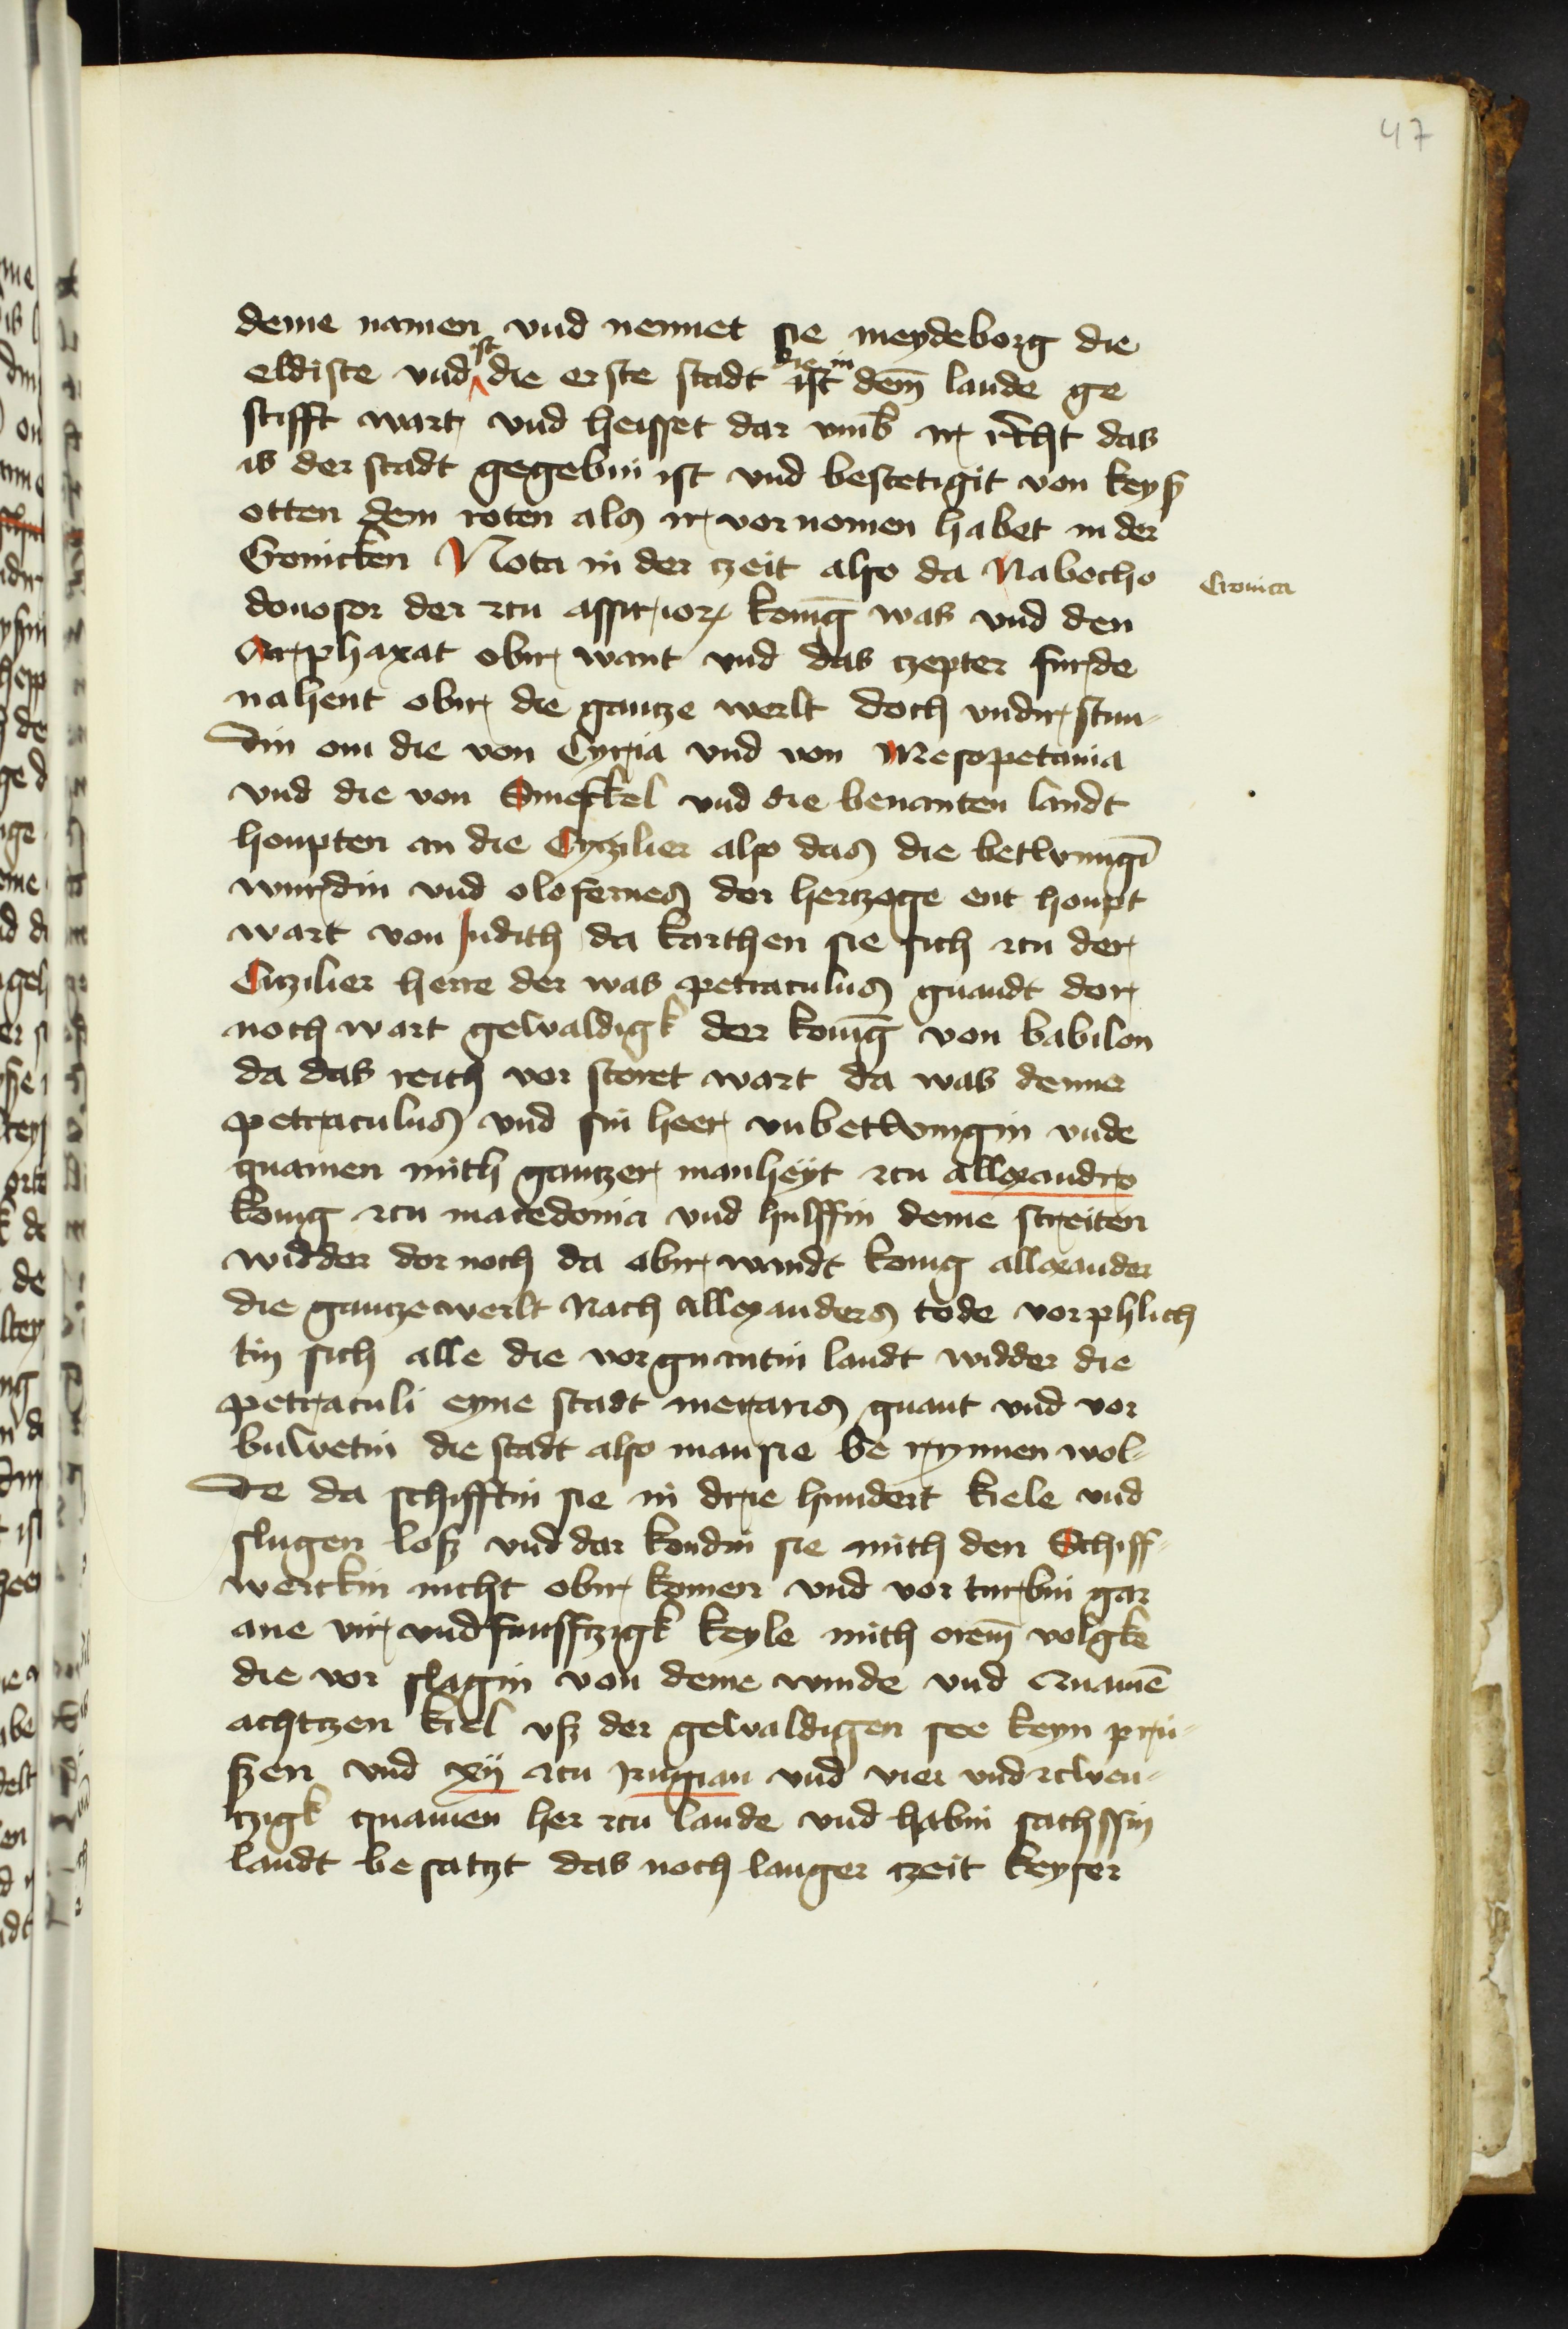 47
deme namen vnd nennet sie meydeborg die
eldiste vnd ist die erste stadt die in dem̄ lande ge
stifft wart vnd heisset dar vmb ir rēcht das
is der stadt gegebin ist vnd bestetigit von keyß
otten dem roten als ir vornomen habet in der
Cronicken Nota in der czeit also da Nabocho
Cronica
donosor der zcu assirior koniḡ was vnd den
Arphaxat obir want vnd das czepter furde
nahent obir die gantze werlt doch vndir stun-
din om die von Cyria vnd von Mesopetania
vnd die von Smeskel vnd die benanten landt
houpten an die Cyczilier also das die betwungī
wurdin vnd olofernes der hertzoge ent houpt
wart von Judith da karthen sie sich zcu der
Ciczilier herre der was petraculus gnandt dor
noch wart gewaldigk der koniḡ von babilon
da das reich vor storet wart da was denne
petraculus vnd sin heer vnbetwungin vnde
quamen mith gantzer manheyt zcu allexandro
konig zcu macedonia vnd hulffin deme streiten
widder dor noch da obir wandt konig allexander
die gantze werlt Nach allexanders tode vorphlich
tin sich alle die vorgnantin landt widder die
petraculi eyne stadt meraris gnant vnd vor
buwetin die stadt also man sie be rynnen wol-
de da schifftin sie in drie hundert kiele vnd
slugen loß vnd dar kondin sie mith den Schiff-
werckin nicht obir komen vnd vorturbin gar
ane vir vnd funfftzigk keyle mith orem̄ volgke
die vor slagin von deme winde vnd quamē
achtzen kiel vß der gewaldigen see keyn pru-
ßen vnd xij zcu Rugian vnd vier vnd zcwen-
tzigk quamen her zcu lande vnd habin sachssin
landt besatzt das noch langer czeit keyser